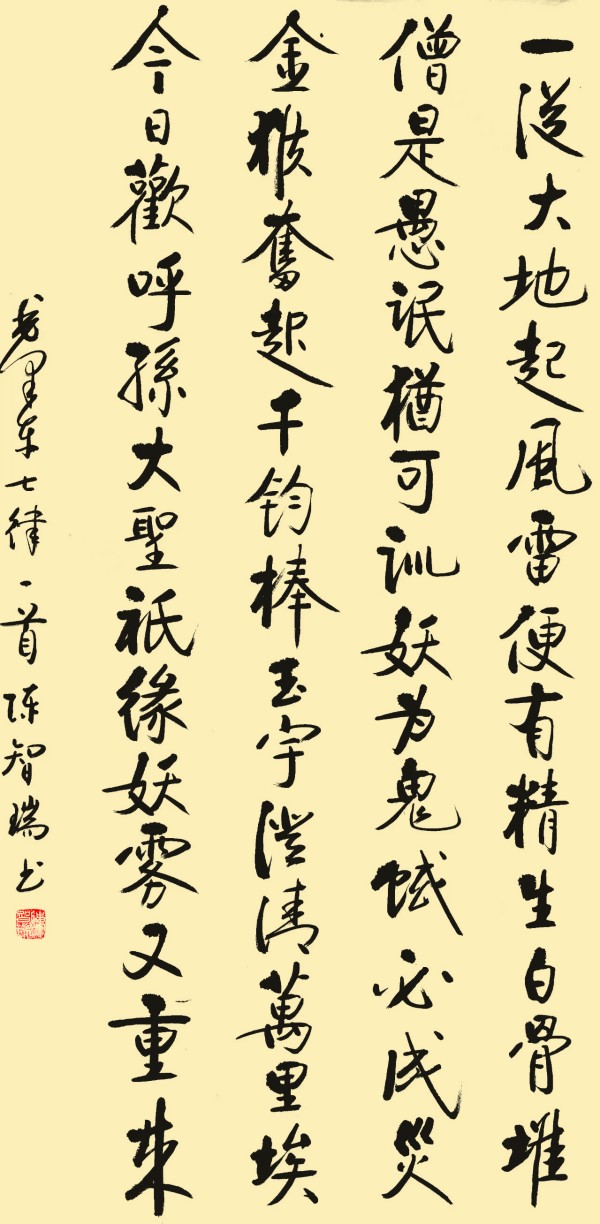 一從大地起風雷便有精生白骨堆
僧是愚氓猶可訓妖為鬼蜮必成災
金猴奮起千鈞棒玉宇澄清萬里埃
今日歡呼孫大聖祇緣妖雾又重來
毛澤东七律一首陈智瑞书